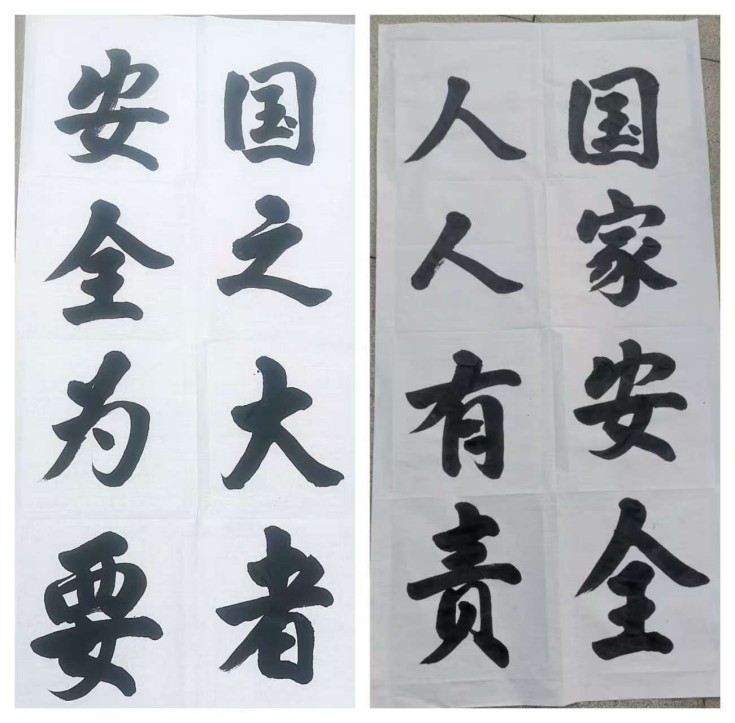 国之大者
安全为要
国家安全
人人有责